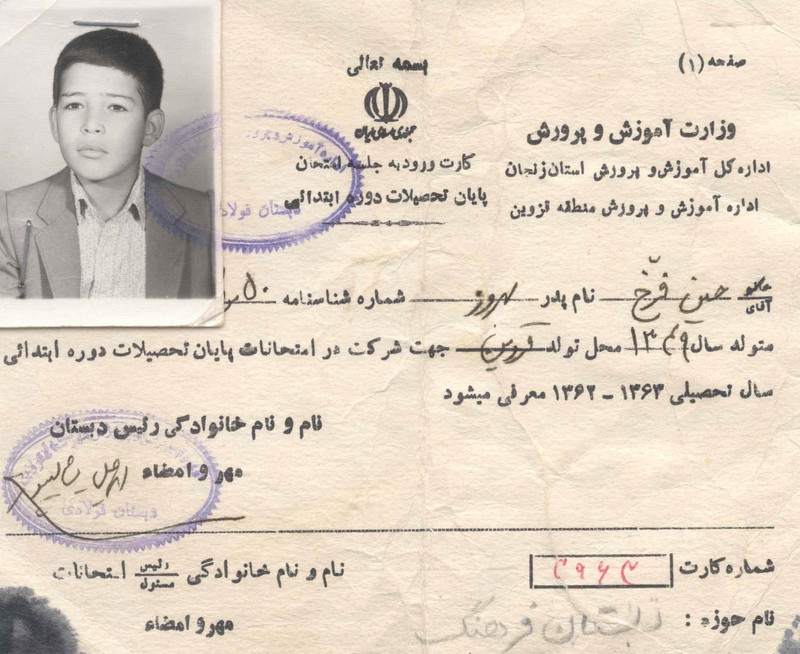 صفحه (۱)
بسمه تعالی
جمهوری اسلامی ایران
وزارت آموزش و پرورش
کارت ورود به جلسه امتحان
اداره کل آموزش و پرورش استان زنجان
پایان تحصیلات دوره ابتدائی
اداره آموزش و پرورش منطقه قزوین
دبستان فولادی
خانم آقای حسین فرخ نام پدر بهروز شماره شناسنامه ۵۰
متولد سال ۱۳۴۹ محل تولد قزوین جهت شرکت در امتحانات پایان تحصیلات دوره ابتدائی
سال تحصیلی ۱۳۶۳ - ۱۳۶۲ معرفی میشود
نام و نام خانوادگی رئیس دبستان
مهر و امضاء
دبستان فولادی
شماره کارت ۳۹۶۳
نام و نام خانوادگی رئیس مسئول امتحانات
نام حوزه : دبستان فرهنگ
مهر و امضاء